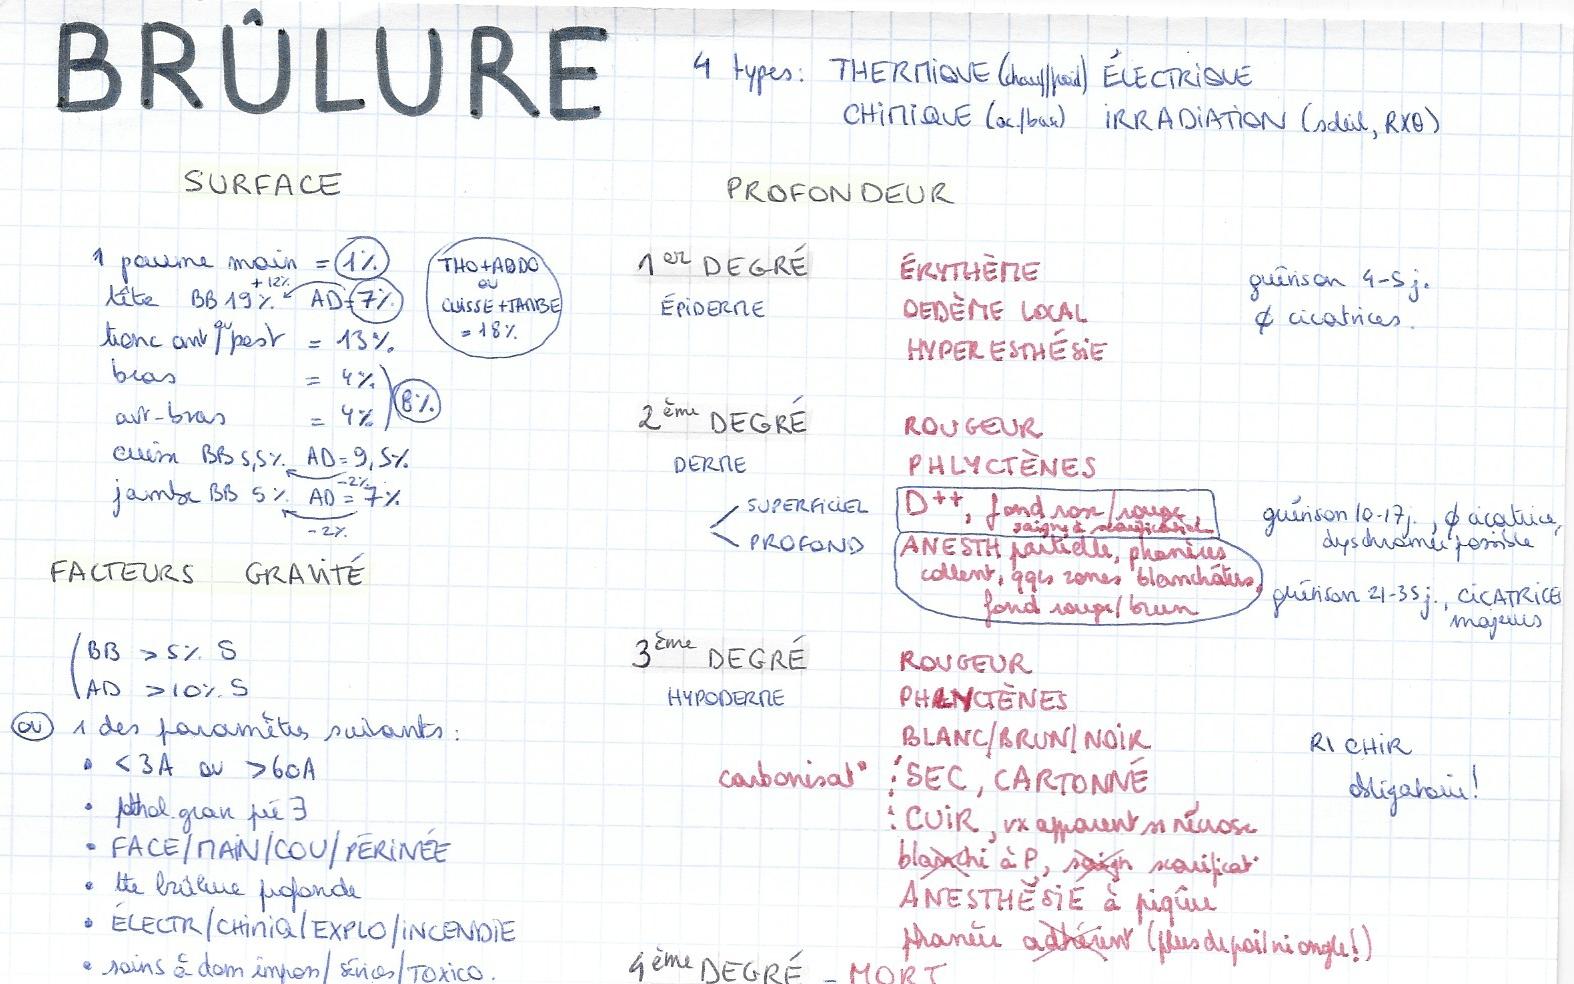 BRÛLURE
4 types: THERMIQUE (chaud/froid) ÉLECTRIQUE
CHIMIQUE (ac/base) IRRADIATION (soleil, RXθ)
SURFACE
1 paume main = 1%
+12%
tête BB 19% AD=7%
tronc ant ou/post = 13%
bras = 4%
avt-bras = 4%
8%
cuisse BB 5,5% AD=9,5%
-2%
jambe BB 5% AD=7%
-2%
THO+ABDO
ou
CUISSE+JAMBE
=18%
FACTEURS GRAVITÉ
BB >5% S
AD >10% S
ou 1 des paramètres suivants:
• <3A ou >60A
• pathol. grav pré ∃
• FACE/MAIN/COU/PÉRINÉE
• tte brûlure profonde
• ÉLECTR/CHIMIQ/EXPLO/INCENDIE
• soins à dom impos/sévices/TOXICO.
PROFONDEUR
1er DEGRÉ
ÉPIDERME
ÉRYTHÈME
OEDÈME LOCAL
HYPERESTHÉSIE
guérison 4-5j.
∅ cicatrices.
2ème DEGRÉ
DERME
ROUGEUR
PHLYCTÈNES
SUPERFICIEL
D++, fond rose/rouge,
saigne à scarification
guérison 10-17j., ∅ cicatrice,
dyschromie possible
PROFOND
ANESTH partielle, phanères
collent, qqs zones blanchâtres,
fond rouge/brun
guérison 21-35j., CICATRICES
majeures
3ème DEGRÉ
HYPODERME
ROUGEUR
PHLYCTÈNES
BLANC/BRUN/NOIR
carbonisat° : SEC, CARTONNÉ
: CUIR, vx apparent si nécrose
blanchi à P, saign scarificat°
ANESTHÉSIE à piqûre
phanère adhérent (plus de poil ni ongle!)
R1 CHIR
obligatoire!
4ème DEGRÉ - MORT